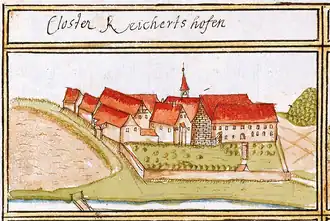 Closter Reicherts hofen